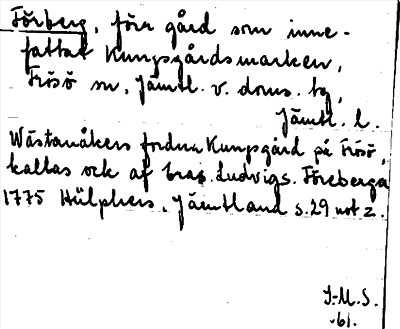 Förberg, förr gård som inne-
fattat Kungsgårdsmarken,
Frösö sn, Jämtl. v. doms. tg,
Jämtl. l.
Wästanåkers fordna Kungsgård på Frösö,
kallas ock af bras. Ludvigs. Föreberga
1775 Hülphers, Jämtland s. 29 not z.
J-M.S.
-61.